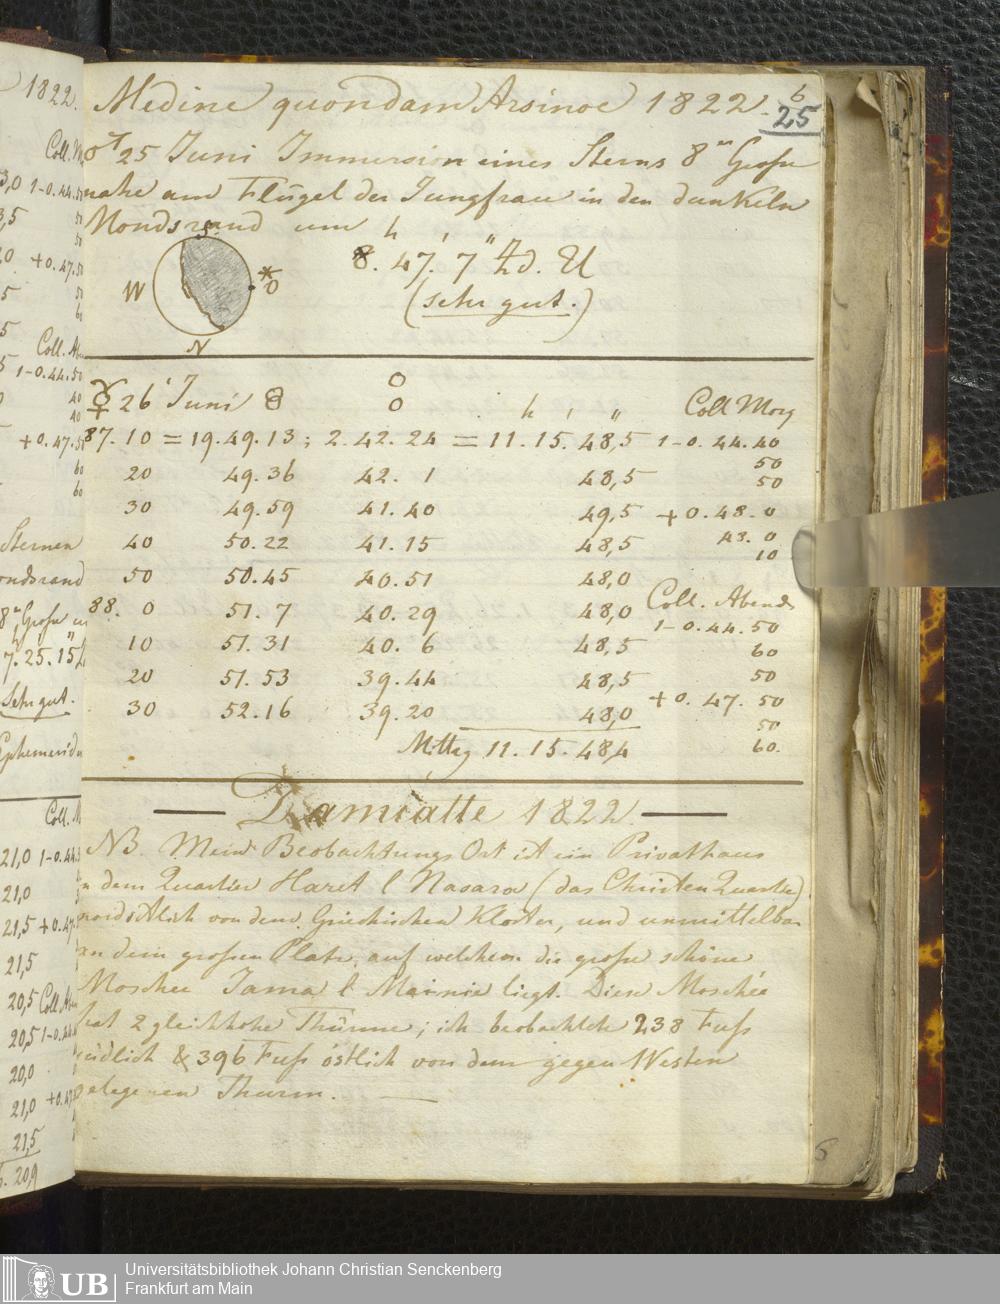 Medine quondam Arsinoe 1822.
6
25
♂ 25 Juni Immersion eines Sterns 8ⁿ Grosse
nahe am Flügel der Jungfrau in den dunkeln
Mondsrand um
h ′ ″
8. 47. 7 Zd. U
(sehr gut.)
S
W
O
N
♀ 26 Juni
O
O
h ′ ″
Coll Morg
87. 10 = 19. 49. 13; 2. 42. 24 = 11. 15. 48,5 1-0. 44. 40
50
20 49. 36 42. 1 48,5 50
30 49. 59 41. 40 49,5 +0. 48. 0
40 50. 22 41. 15 48,5 48. 0
10
50 50. 45 40. 51 48,0
Coll. Abends
88. 0 51. 7 40. 29 48,0
1-0. 44. 50
10 51. 31 40. 6 48,5 60
20 51. 53 39. 44 48,5 50
30 52. 16 39. 20 48,0 +0. 47. 50
50
Mittag 11. 15. 48,4 60
Damiatte 1822.
NB. Mein Beobachtungs Ort ist ein Privathaus
in dem Quartier Haret l Nasara (das Christen Quartier)
nordöstlich von dem Griechischen Kloster, und unmittelbar
an dem grossen Platz, auf welchem die grosse schöne
Moschee Jama l Mainie liegt. Diese Moschee
hat 2 gleichhohe Thürme; ich beobachtete 238 Fuss
südlich & 396 Fuss östlich von dem gegen Westen
gelegenen Thurm.
6
1822.
Sternen
Mondsrand
8ⁿ Grosse
7. 25. 15
Sehr gut.
Ephemeriden
21,0
21,0
21,5
21,5
20,5
20,5
20,0
21,0
21,5
20,9
UB
Universitätsbibliothek Johann Christian Senckenberg
Frankfurt am Main